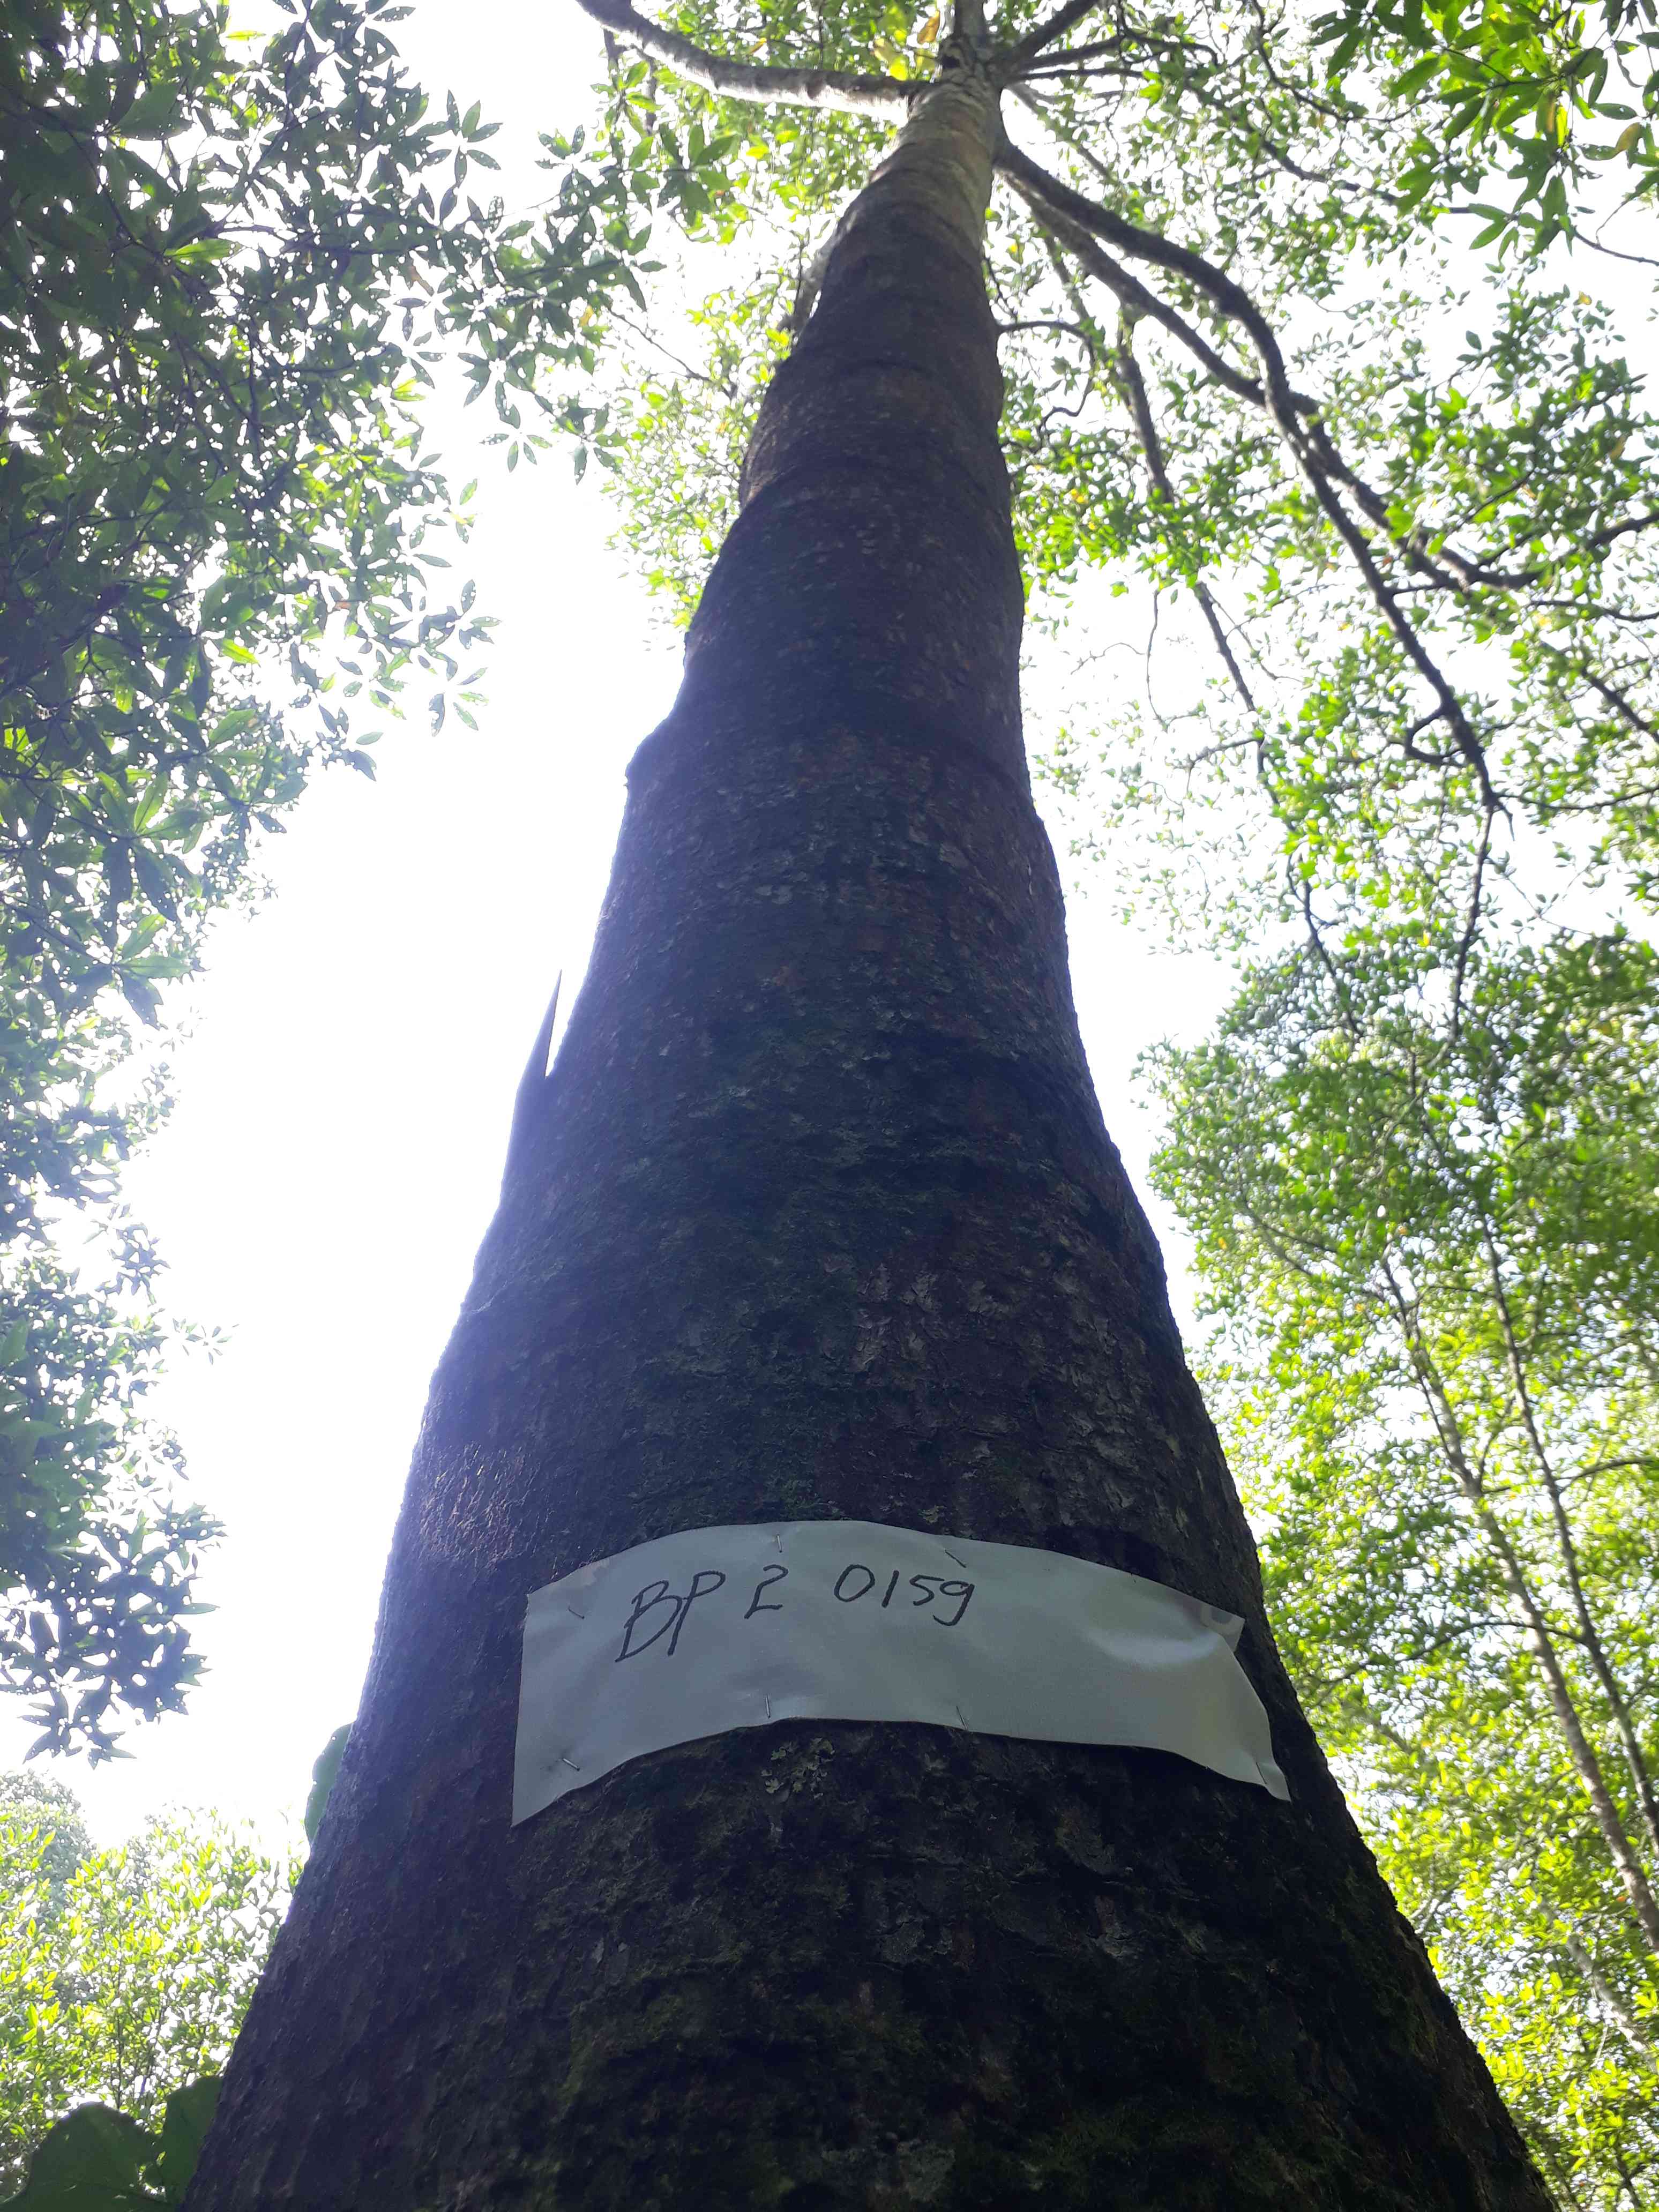 BP 2 0159